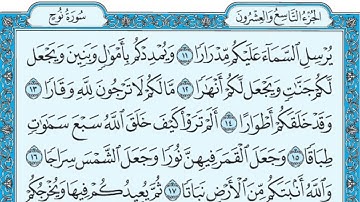 الجُزْءُ التَّاسِعُ وَالعِشْرُونَ
سُورَةُ نُوحٍ
يُرْسِلِ السَّمَآءَ عَلَيْكُم مِّدْرَارًا ١١ وَيُمْدِدْكُم بِأَمْوَٰلٍ وَبَنِينَ وَيَجْعَل
لَّكُمْ جَنَّٰتٍ وَيَجْعَل لَّكُمْ أَنْهَٰرًا ١٢ مَّا لَكُمْ لَا تَرْجُونَ لِلَّهِ وَقَارًا ١٣
وَقَدْ خَلَقَكُمْ أَطْوَارًا ١٤ أَلَمْ تَرَوْا۟ كَيْفَ خَلَقَ ٱللَّهُ سَبْعَ سَمَٰوَٰتٍ
طِبَاقًا ١٥ وَجَعَلَ ٱلْقَمَرَ فِيهِنَّ نُورًا وَجَعَلَ ٱلشَّمْسَ سِرَاجًا ١٦
وَٱللَّهُ أَنۢبَتَكُم مِّنَ ٱلْأَرْضِ نَبَاتًا ١٧ ثُمَّ يُعِيدُكُمْ فِيهَا وَيُخْرِجُكُمْ